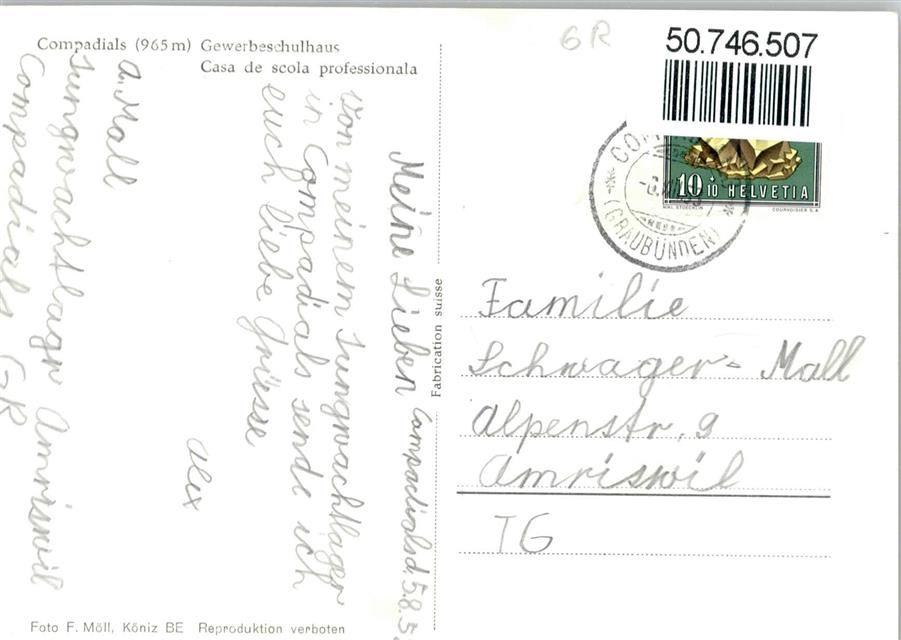 Compadials (965 m) Gewerbeschulhaus
Casa de scola professionala
GR
50.746.507
10+10 HELVETIA
COURVOISIER S.A.
(GRAUBÜNDEN)
Compadials d. 5.8.5
Meine Lieben
Von meinem Jungwachtlager
in Compadials sende ich
euch liebe Grüsse
Alex
A. Mall
Jungwachtlagr Amriswil
Compadials GR
Fabrication suisse
Familie
Schwager-Mall
Alpenstr. 9
Amriswil
TG
Foto F. Möll, Köniz BE Reproduktion verboten